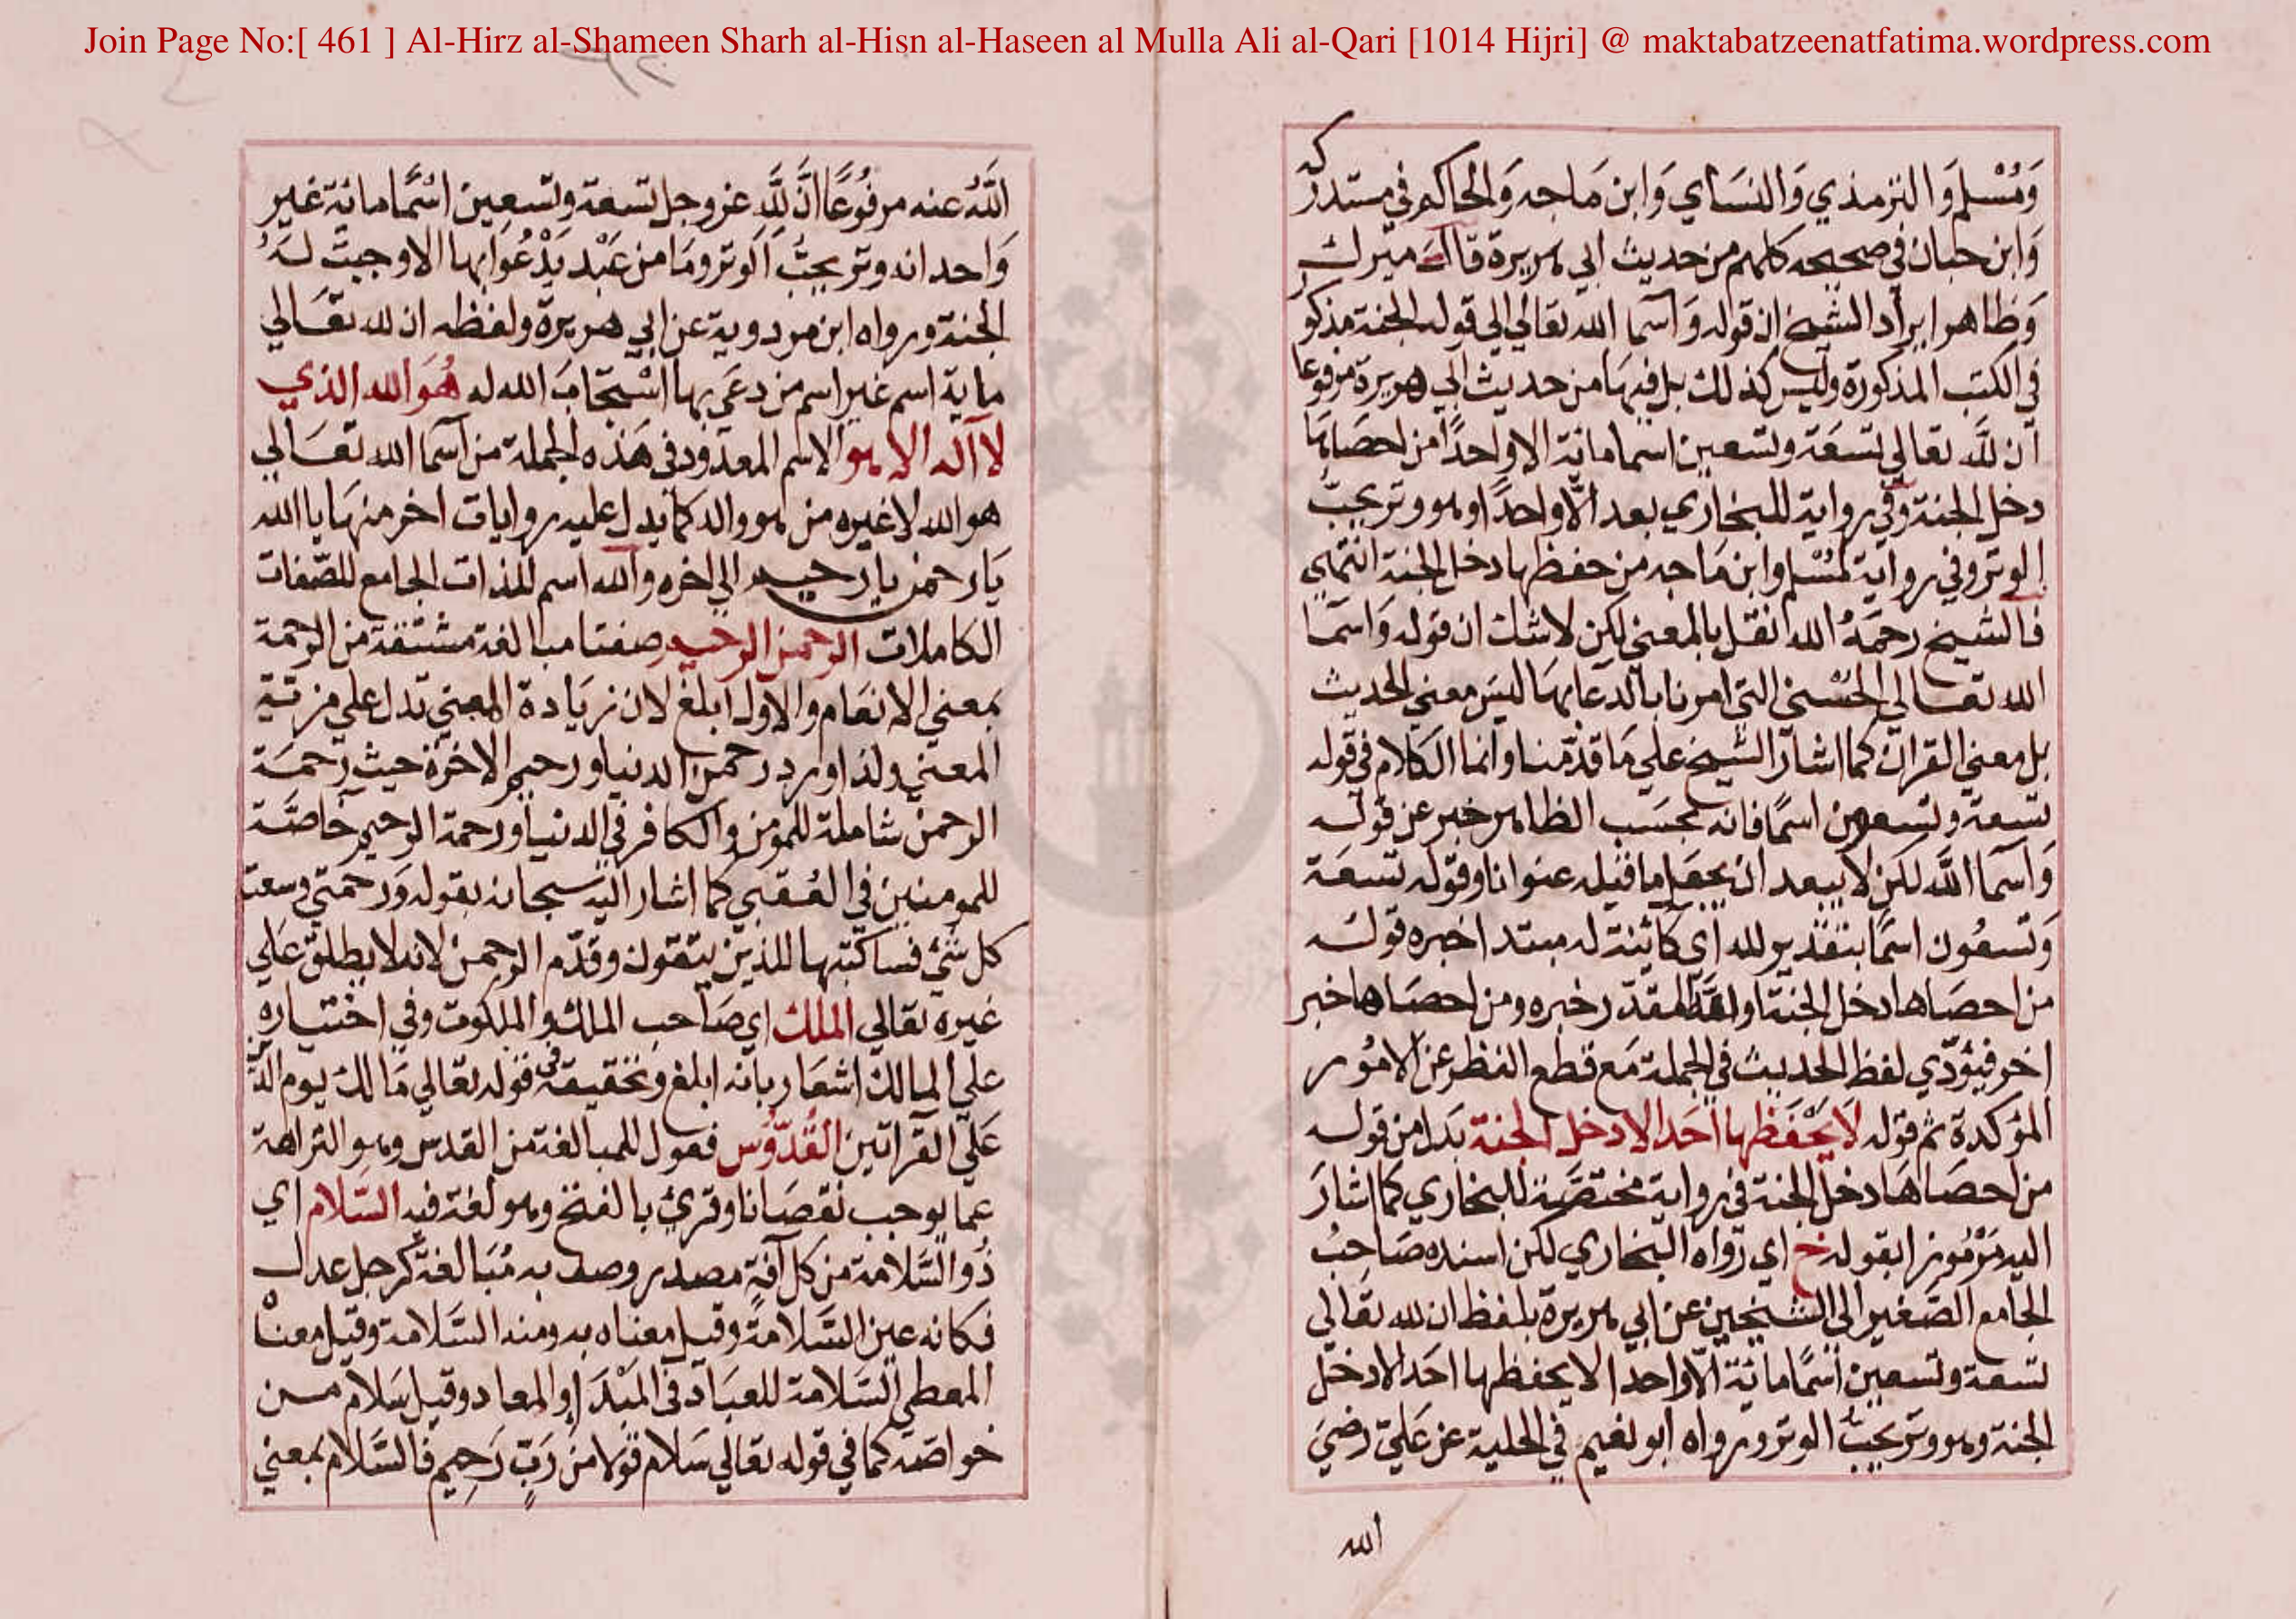 Join Page No:[ 461 ] Al-Hirz al-Shameen Sharh al-Hisn al-Haseen al Mulla Ali al-Qari [1014 Hijri] @ maktabatzeenatfatima.wordpress.com
وَمُسْلم وَالترمذي وَالنسَاي وَابن مَاجه وَالحاكم في مستدركه
وَابن حبان في صحيحه كلهم من حديث ابي هريرة قال ميرك
وَظاهر ايراد الشيخ ان قوله وَاسما الله تعالي الي قوله الجنة مذكور
في الكتب المذكورة وليس كذلك بل فيهَا من حديث ابي هريرة مرفوعا
ان للَّه تعالي تسعَة وتسعين اسما مائة الا واحدًا من احصَاهَا
دخل الجنة وفي رواية للبخاري بعد الّا واحدًا وهو وتر يحبّ
الوتر وفي رواية لمُسْلم وابن مَاجه من حفظها دخل الجنة انتهي
فالشيخ رحمَهُ الله نقل بالمعني لكن لا شك ان قوله وَاسمَا
الله تعَالي الحُسْني التي امرنا بالدعا بهَا ليسَ معني الحديث
بل معني القران كما اشار الشيخ علي مَا قدّمنا وانما الكلام في قوله
تسعة وتسعون اسمًا فانه بحسَب الظاهر خبر عن قوله
وَاسمَا اللَّه لكن لا يبعد ان يجعَل ما قبله عنوانا وقوله تسعَة
وَتسعُون اسمًا بتقدير لله اي كائنة له مبتدا خبره قوله
من احصَاها دخل الجنة او لله المقدّر خبره ومن احصَاها خبر
اخر فيؤدّي لفظ الحديث في الجملة مَع قطع النظر عن الامُور
المؤكدة ثم قوله لَا يَحْفَظها احَد الا دخل الجنة بدَلا من قوله
من احصَاهَا دخل الجنة في رواية مختصَّة للبخاري كما اشارَ
اليه مَرْمُوزا بقوله خ اي رَواه البخاري لكن اسنده صَاحبُ
الجامع الصَّغير الي الشيخين عن ابي هريرة بلفظ ان لله تعَالي
تسعة وتسعين اسمًا مائة الّا واحدا لا يحفظها احَد الا دخل
الجنة وهو وتر يحبّ الوتر ورواه ابو نعيم في الحلية عن عَليّ رضيَ
الله
اللَّهُ عنه مرفوُعًا انَّ للَّهِ عز وجل تسعة وتسعين اسْمًا مائة غير
وَاحد انه وتر يحبُّ الوتر ومَا من عَبْد يَدْعُوا بها الا وجبتْ لَهُ
الجنة ورواه ابن مردوية عن ابي هريرة ولفظه ان لله تعَالي
ماية اسم غير اسم من دعَي بها اسْتجَابَ الله له هُوَ الله الذي
لا اله الا هو الاسم المعدود في هَذه الجملة من اسما الله تعَالي
هو الله لا غيره من هو واله كما يدل عليه روايات اخر منهَا يا الله
يَا رحمن يا رحيم الي اخره والله اسم للذات الجامع للصّفات
الكاملات الرحمن الرحيم صفتا مبالغة مشتقة من الرحمَة
بمعني الانعَام والاول ابلغ لان زيَادة المبني تدل علي مزيّة
المعني ولذا ورد رحمن الدنيا ورحيم الاخرة حيث رَحمَة
الرحمن شاملة للمومن والكافر في الدنيا ورحمة الرحيم خاصَّة
للمومنين في العُقبي كما اشار اليه سبحانه بقوله وَرحمتي وسعت
كل شيْ فساكتبها للذين يتقون وقدّم الرحمن لانه لا يطلق عَلي
غيره تعَالي الملك اي صَاحب الملك والملكوت وفي اختيَاره
علي المالك اشعَار بانه ابلغ وتحقيقه في قوله تعَالي مَالك يوم الدين
عَلي القراتين القُدّوُس فعول للمبالغة من القدس وهو النزاهة
عما يوجب نقصَانا وقريَ بالفتح وهو لغة فيه السّلام اي
ذُو السَّلامة من كل آفةٍ مصدر وصف به مُبَالغة كرجل عدل
فكانه عين السَّلامة وقيل معناه به ومنه السَّلامة وقيل معناه
المعطي السَّلامة للعبَاد في المَبْدَا والمعاد وقيل سَلام من
خواصّه كما في قوله تعَالي سَلام قَولا مِن رَبٍّ رَحِيم فالسَّلام بمعني